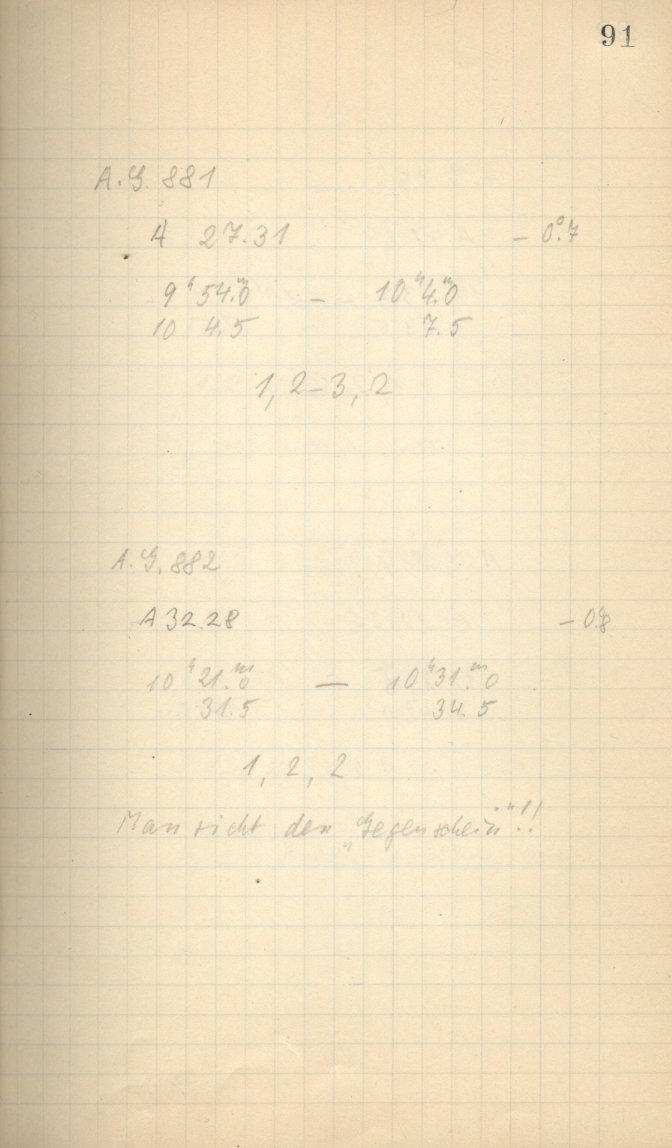 91
A.G. 881
A 27.31 – 0°.7
9ʰ 54.ᵐ0 – 10ʰ 4.ᵐ0
10 4.5 7.5
1, 2–3, 2
A.G. 882
A 32.28 – 0.8
10ʰ 21.ᵐ0 — 10ʰ 31.ᵐ0
31.5 34.5
1, 2, 2
Man sieht den „Gegenschein"!!